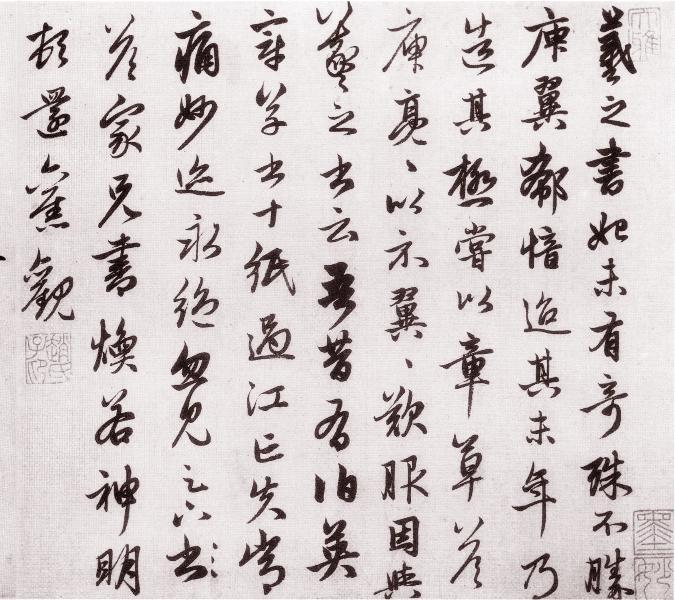 大雅
羲之書始未有奇殊不勝
庾翼郗愔迨其末年乃
造其極嘗以章草答
庾亮々以示翼々歎服因與
羲之書云吾昔有伯英
章草書十紙過江亡失常
痛妙迹永絕忽見足下書
答家兄書煥若神明
頓還舊觀
趙氏子昂
墨妙